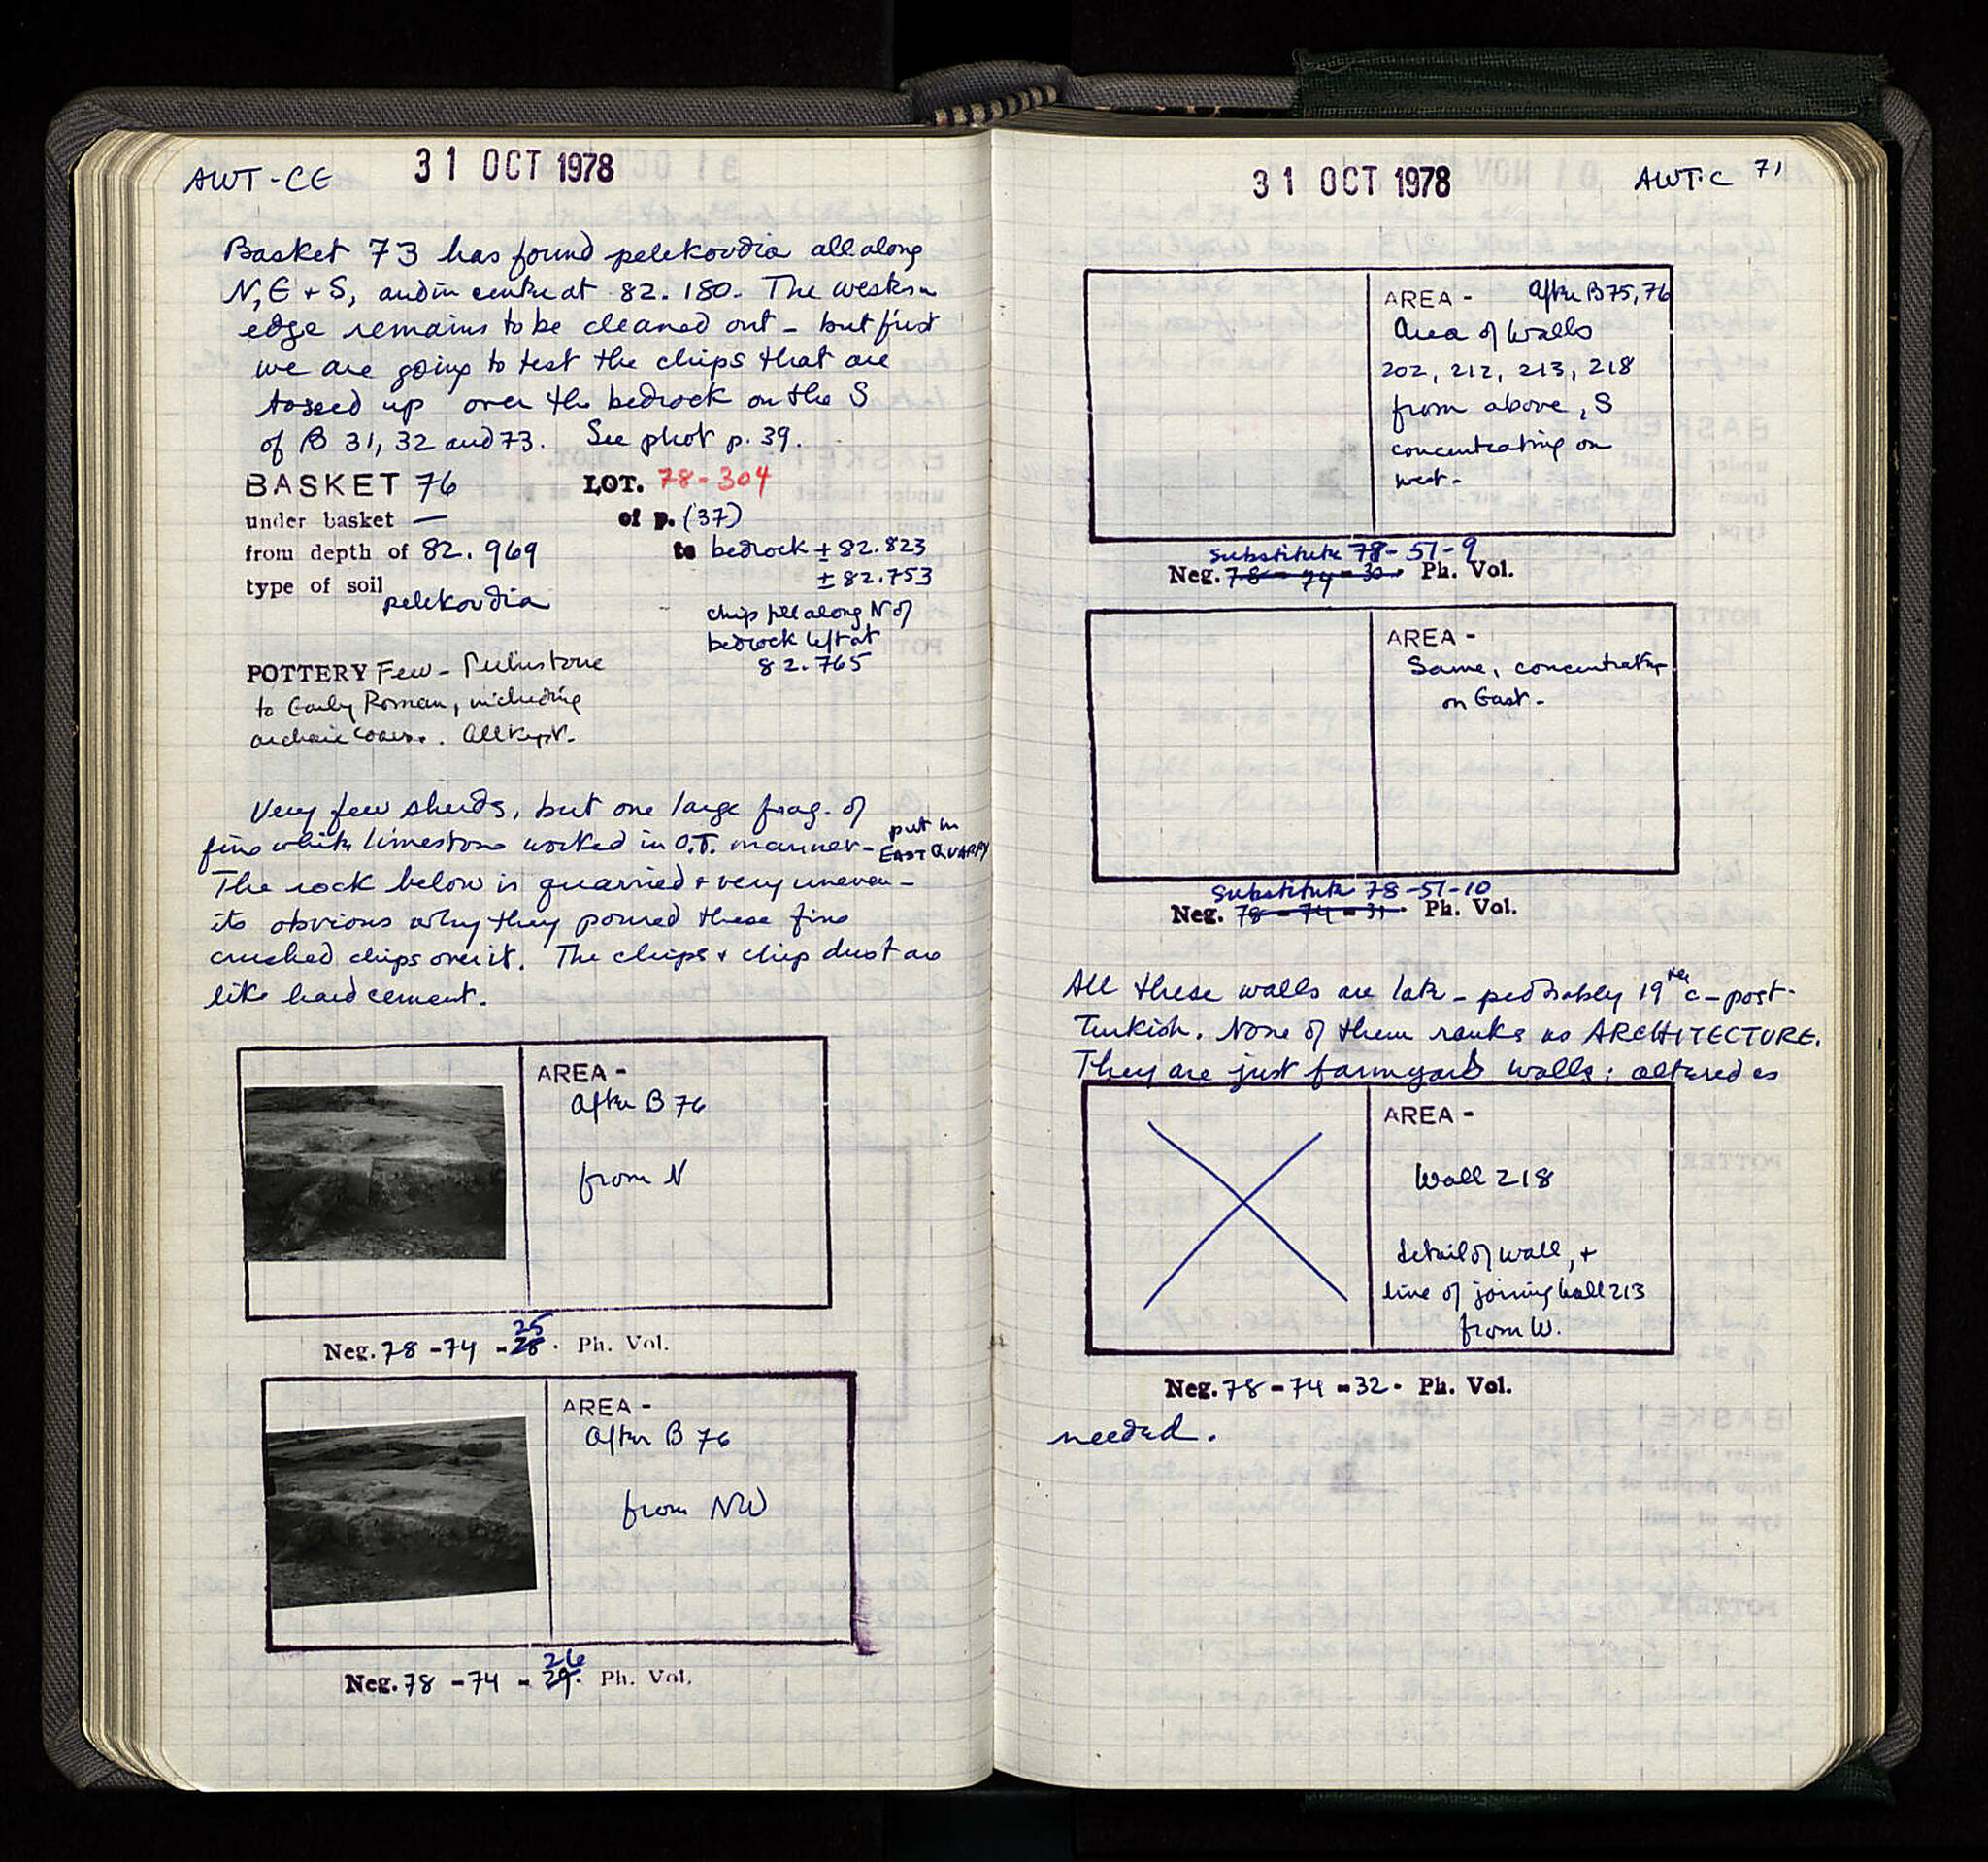 AWT-CE 31 OCT 1978
Basket 73 has found pelekoudia all along
N, E + S, and in centre at 82.180. The western
edge remains to be cleaned out - but first
we are going to test the chips that are
tossed up over the bedrock on the S
of B 31, 32 and 73. See phot p. 39.
BASKET 76 LOT. 78-304
under basket — of p. (37)
from depth of 82.969 to bedrock ± 82.823
± 82.753
type of soil pelekoudia
chip fill along N of
bedrock left at
82.765
POTTERY Few -
to Early Roman, including
archaic coarse. All kept.
Very few sherds, but one large frag. of
fine white limestone worked in O.T. manner - put in EAST QUARRY
The rock below is quarried + very uneven -
its obvious why they poured these fine
crushed chips over it. The chips + chip dust are
like hard cement.
AREA -
After B 76
from N
Neg. 78 - 74 - 28 25 . Ph. Vol.
AREA -
After B 76
from NW
Neg. 78 - 74 - 29 26 . Ph. Vol.
31 OCT 1978 AWT-C 71
AREA - After B75, 76
Area of Walls
202, 212, 213, 218
from above, S
concentrating on
west -
substitute 78-51-9
Neg. 78 - 74 - 30 . Ph. Vol.
AREA -
Same, concentrating
on East -
substitute 78-51-10
Neg. 78 - 74 - 31 . Ph. Vol.
All these walls are late - probably 19th c - post-
Turkish. None of them ranks as ARCHITECTURE.
They are just farmyard walls; altered as
AREA -
Wall 218
detail of wall, +
line of joining Wall 213
from W.
Neg. 78 - 74 - 32 . Ph. Vol.
needed.